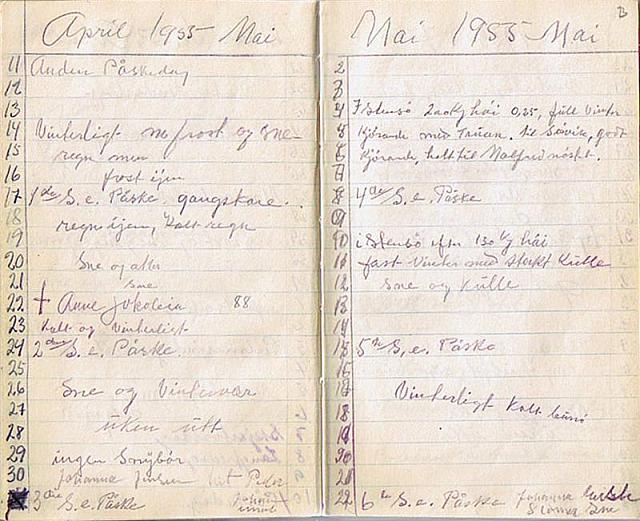 April 1955 Mai
11 Anden Påskedag
12
13
14 Vinterligt m frost og sne-
15 regn men
16 frost ijen
17 1ste S. e. Påske. gangskare..
18 regn ijen, Kalt regn
19
20 Sne og atter
21 sne
22 † Anne Jokoleia 88
23 Kalt og Vinterligt
24 2den S. e. Påske.
25
26 Sne og Vinterver
27
28 uken utt
29 ingen Snybør
30 Johanna hit Peder
3die S. e. Påske
Mai 1955 Mai
2
3
4 200 kg hái 0,25, full Vinter
5 Kjørande med til godt
6 Kjørande, halt til
7
8 4de S. e. Påske
9
10 i Stensö 130 kg hái
11 fast Vinter med sterkt Külle
12 Sne og Külle
13
14
15 5te S, e. Påske
16
17 Vinterligt Kalt
18
19
20
21
22 6te S. e. Påske Johanna